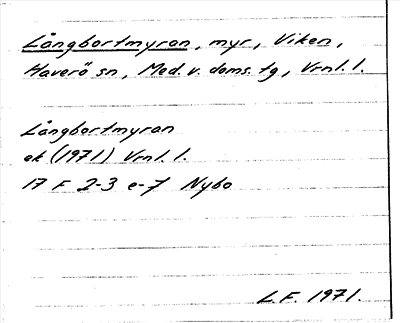 Långbortmyran, myr, Viken,
Haverö sn, Med. v. doms. tg, Vrnl. l.
Långbortmyran
ek (1971) Vrnl. l.
17 F 2-3 e-f Nybo
L.F. 1971.